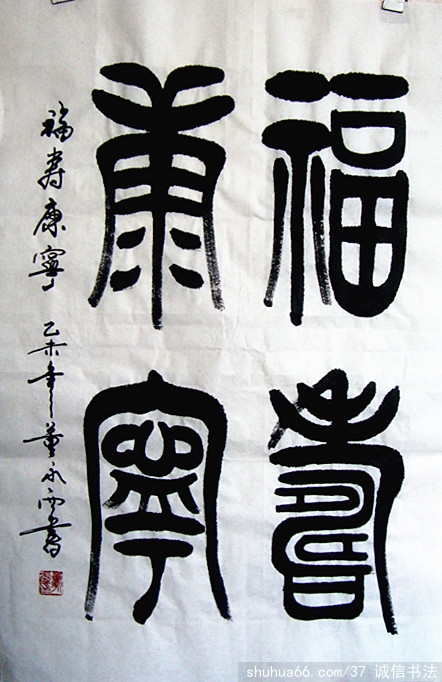 福壽
康寧
福壽康寧 乙未年董永西書
shuhua66.com/37 诚信书法